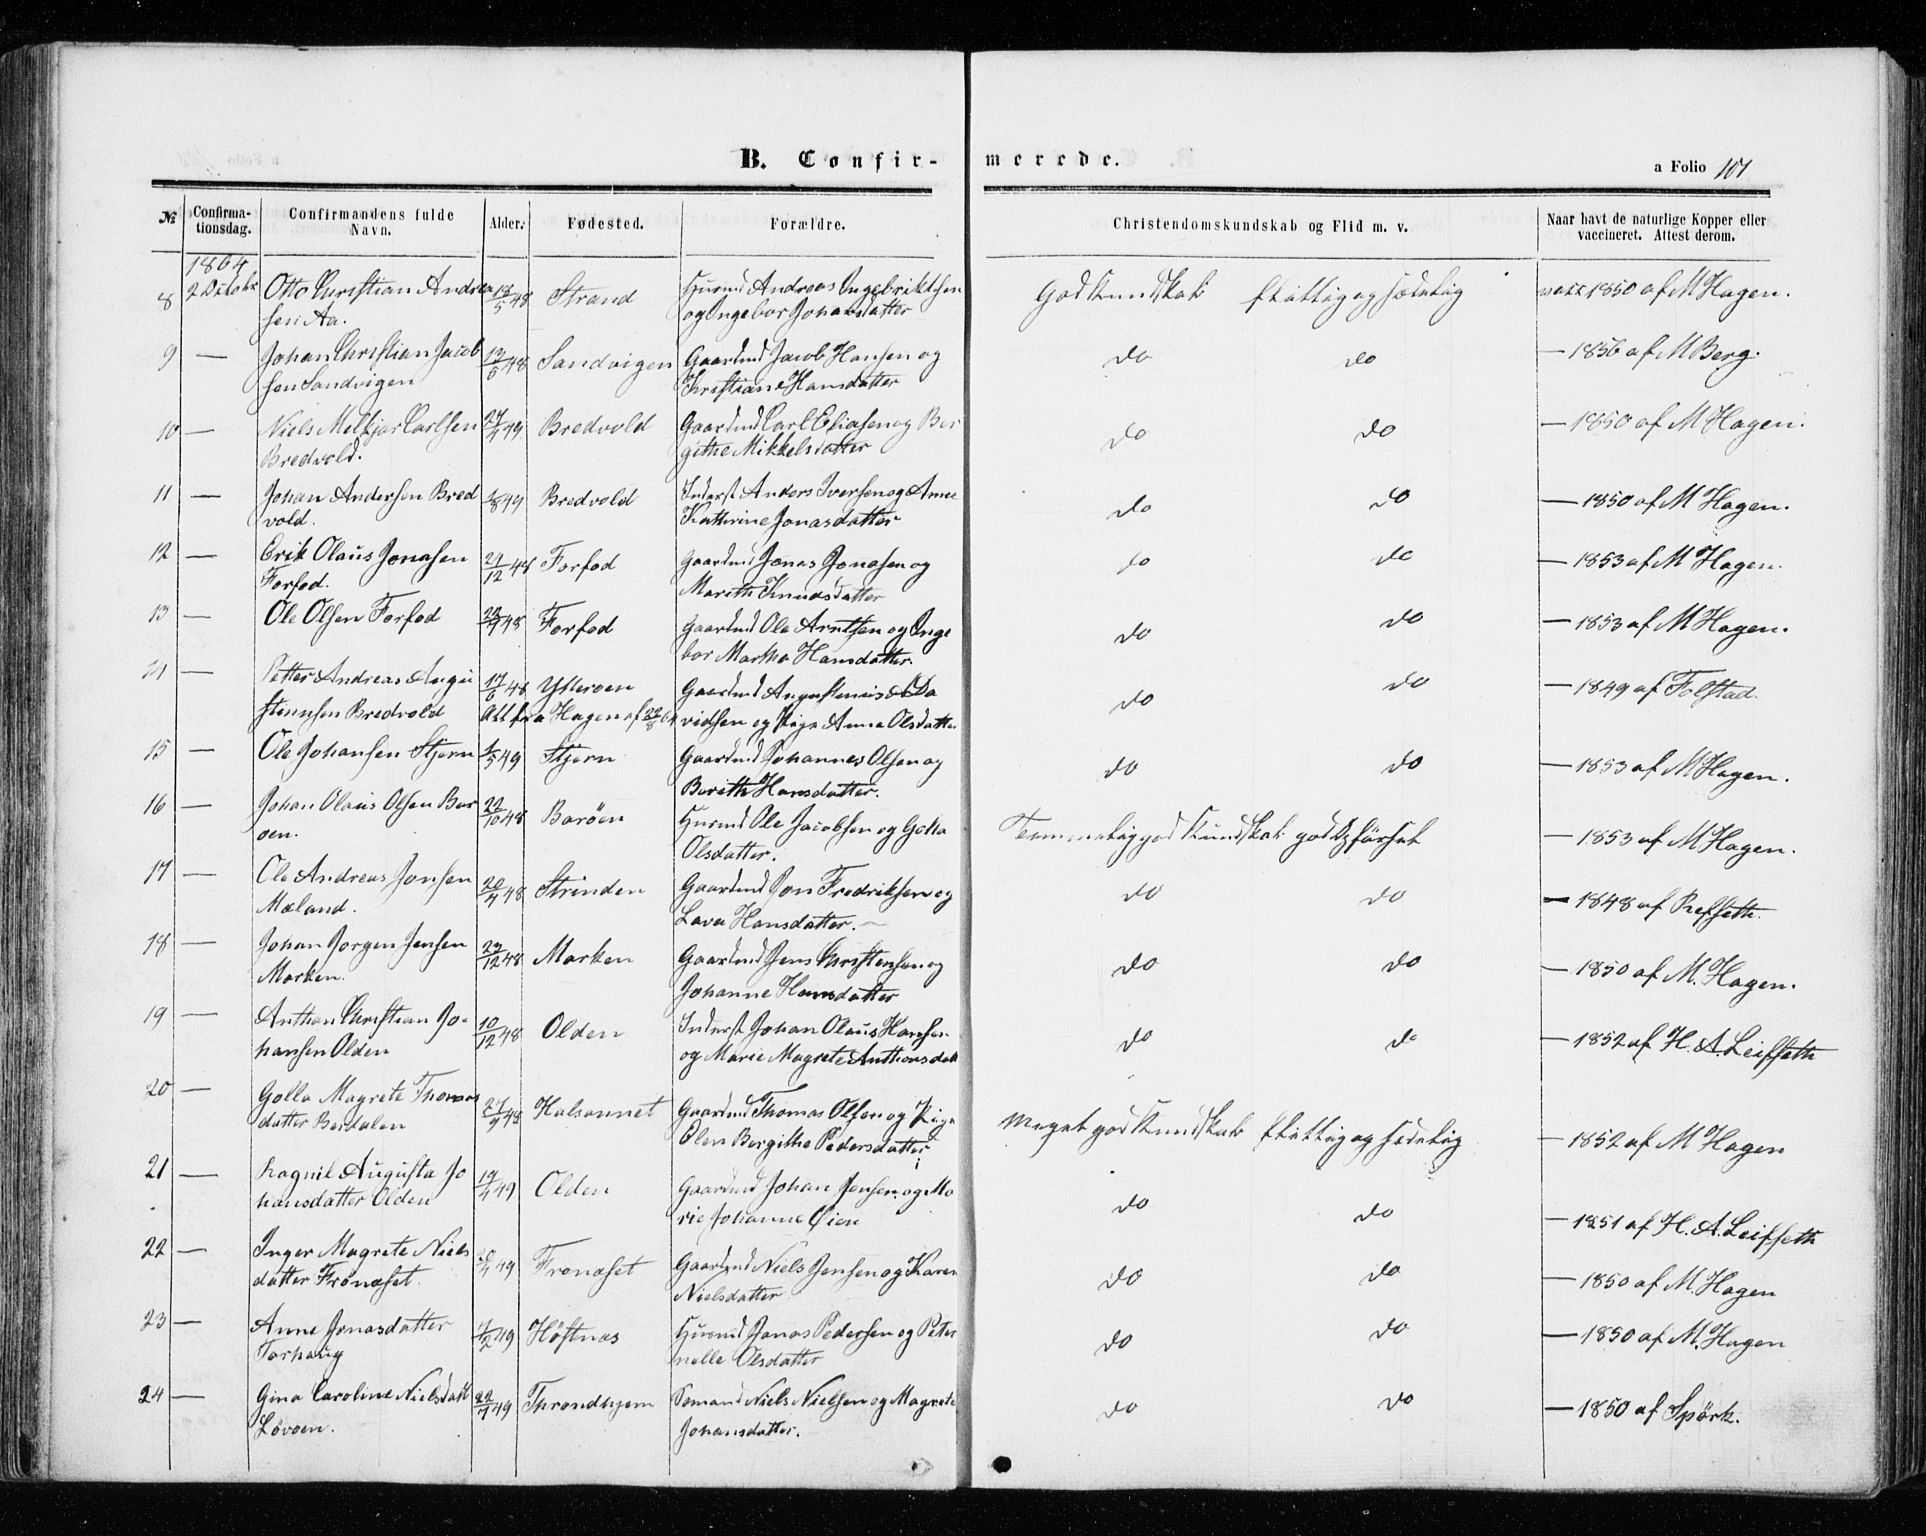 B. Confir-
merede.
a Folio 101
№
Confirma-
tionsdag.
Confirmandens fulde
Navn.
Alder.
Fødested.
Forældre.
Christendomskundskab og Flid m. v.
Naar havt de naturlige Kopper eller
vaccineret. Attest derom.
1864
8 2 Octobr Otto Christian Andrea 13/5 48 Strand Husmd Andreas Ingebrigtsen God Kundskab flittig og sædelig vacc 1850 af M Hagen.
sen Aa. og Ingebor Johansdatter
9 — Johan Christian Jacob 13/6 48 Sandvigen Gaardmd Jacob Hansen og do do — 1856 af M Berg.
sen Sandvigen Kristiane Hansdatter
10 — Niels Melkjor Carlsen 24/4 49 Bredvold Gaardmd Carl Eliasen og Ber do do — 1850 af M Hagen.
Bredvold. githe Mikkelsdatter
11 — Johan Andersen Bred /8 49 Bredvold Inderst Anders Iversen og Anne do do — 1850 af M Hagen.
vold. Kathrine Jonasdatter
12 — Erik Olaus Jonasen 21/12 48 Forfod Gaardmd Jonas Jonasen og do do — 1853 af M Hagen.
Forfod. Marith Knudsdatter
13 — Ole Olsen Forfod 48 Forfod Gaardmd Ole Arntsen og Inge do do — 1853 af M Hagen.
bor Martha Hansdatter.
— Petter Andreas Augu 17/6 48 Ytteroen Gaardmd Augustinius Da do do — 1849 af Folstad.
stinusen Bredvold Att fra Hagen af 22/8 64 vidsen og Pige Anne Olsdatter
15 — Ole Johansen Stjern 1/5 49 Stjern Gaardmd Johannes Olsen og do do — 1853 af M Hagen.
Berith Hansdatter.
16 — Johan Olaus Olsen Bar 22/10 48 Barøen Husmd Ole Jacobsen og Goha Temmelig god Kundskab god Opførsel — 1853 af M Hagen.
oen. Olsdatter.
17 — Ole Andreas Jonsen 20/4 48 Strinden Gaardmd Jon Fredriksen og do do — 1848 af Refseth.
Mæland. Lava Hansdatter. —
18 — Johan Jørgen Jensen 27/12 48 Marken Gaardmd Jens Christensen og do do — 1850 af M. Hagen.
Marken. Johanne Hansdatter
19 — Anthon Christian Jo- 10/12 48 Olden Inderst Johan Olaus Hansen do do — 1852 af H. A. Leifseth
hansen Olden og Marie Magrete Anthonsdatt
20 — Golla Magrete Thomas 27/9 48 Halsannet Gaardmd Thomas Olsen og Pige Meget god Kundskab flittig og sædelig — 1852 af M Hagen
datter Berdalen Elen Bergithe Pedersdatter
21 — Ragnil Augusta Jo 19/4 49 Olden Gaardmd Johan Jensen og Ma do do — 1851 af H. A. Leifseth
hansdatter Olden rie Johanne Øien
22 — Inger Magrete Niels 20/4 49 Fronæset Gaardmd Niels Jensen og Karen do do — 1850 af M. Hagen
datter Fronæset. Nielsdatter
23 — Anne Jonasdatter /2 49 Høftnæs Husmd Jonas Pedersen og Peter do do — 1850 af M. Hagen
Torhaug nelle Olsdatter
24 — Gina Caroline Nielsdatt 22/7 49 Throndhjem Sømand Niels Nielsen og Magrete do do — 1850 af Spörk.
Løvoen. Johansdatter.